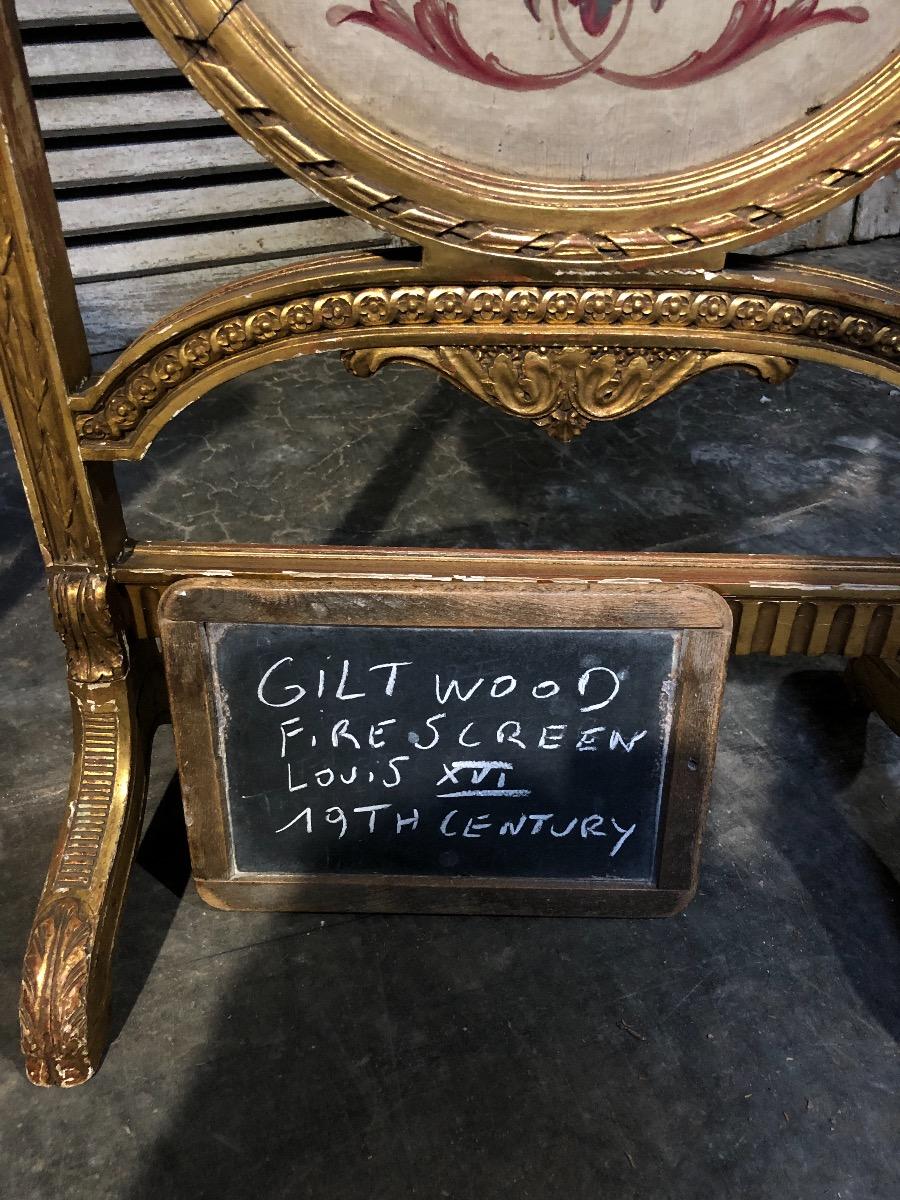 GILT WOOD
FIRE SCREEN
LOUIS XVI
19TH CENTURY